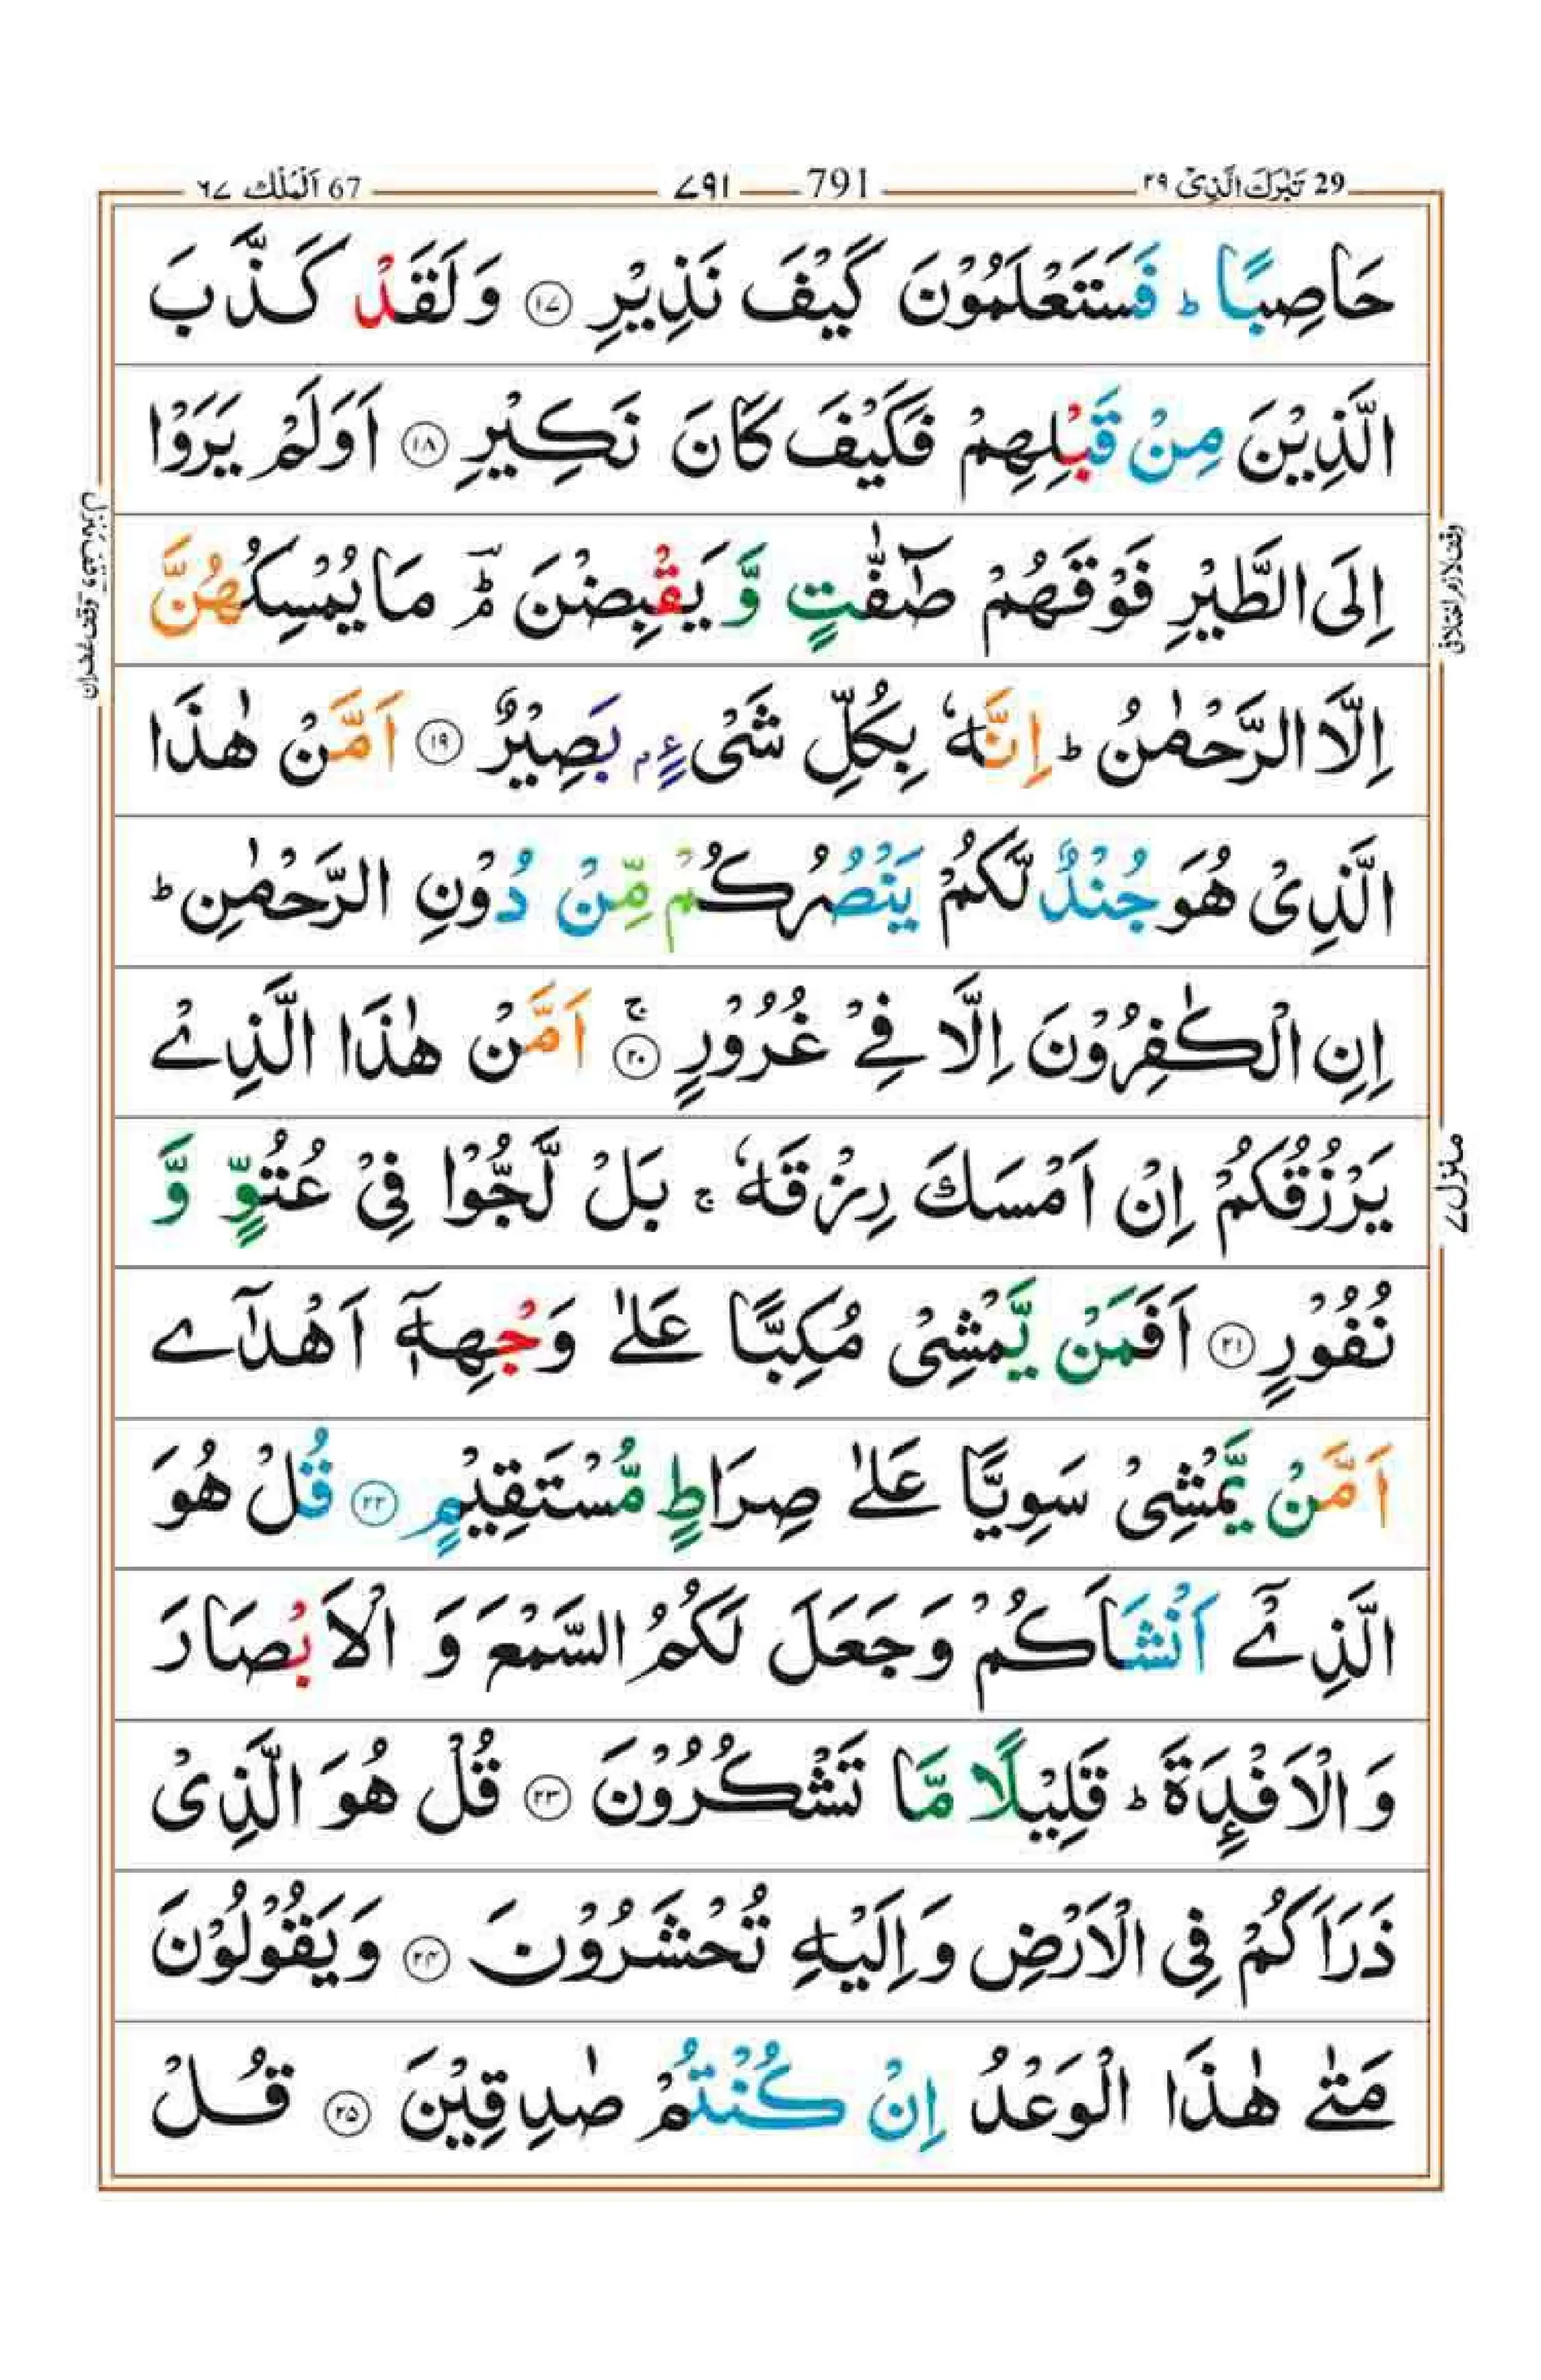 29 تَبٰرَكَ الَّذِیْ ٢٩ 791 ٧٩١ 67 اَلْمُلْك ٦٧
حَاصِبًا ؕ فَسَتَعْلَمُوْنَ كَیْفَ نَذِیْرِ ١٧ وَ لَقَدْ كَذَّبَ
الَّذِیْنَ مِنْ قَبْلِهِمْ فَكَیْفَ كَانَ نَكِیْرِ ١٨ اَوَلَمْ یَرَوْا
اِلَی الطَّیْرِ فَوْقَهُمْ صٰٓفّٰتٍ وَّ یَقْبِضْنَ ؔؕۘ مَا یُمْسِكُهُنَّ
اِلَّا الرَّحْمٰنُ ؕ اِنَّهٗ بِكُلِّ شَیْءٍۭ بَصِیْرٌ ١٩ اَمَّنْ هٰذَا
الَّذِیْ هُوَ جُنْدٌ لَّكُمْ یَنْصُرُكُمْ مِّنْ دُوْنِ الرَّحْمٰنِ ؕ
اِنِ الْكٰفِرُوْنَ اِلَّا فِیْ غُرُوْرٍ ۚ ٢٠ اَمَّنْ هٰذَا الَّذِیْ
یَرْزُقُكُمْ اِنْ اَمْسَكَ رِزْقَهٗ ۚ بَلْ لَّجُّوْا فِیْ عُتُوٍّ وَّ
نُفُوْرٍ ٢١ اَفَمَنْ یَّمْشِیْ مُكِبًّا عَلٰی وَجْهِهٖۤ اَهْدٰۤی
اَمَّنْ یَّمْشِیْ سَوِیًّا عَلٰی صِرَاطٍ مُّسْتَقِیْمٍ ٢٢ قُلْ هُوَ
الَّذِیْۤ اَنْشَاَكُمْ وَ جَعَلَ لَكُمُ السَّمْعَ وَ الْاَبْصَارَ
وَ الْاَفْـِٕدَةَ ؕ قَلِیْلًا مَّا تَشْكُرُوْنَ ٢٣ قُلْ هُوَ الَّذِیْ
ذَرَاَكُمْ فِی الْاَرْضِ وَ اِلَیْهِ تُحْشَرُوْنَ ٢٤ وَ یَقُوْلُوْنَ
مَتٰی هٰذَا الْوَعْدُ اِنْ كُنْتُمْ صٰدِقِیْنَ ٢٥ قُلْ
وقف لازم اختلافی
منزل ٧
وقف غفران